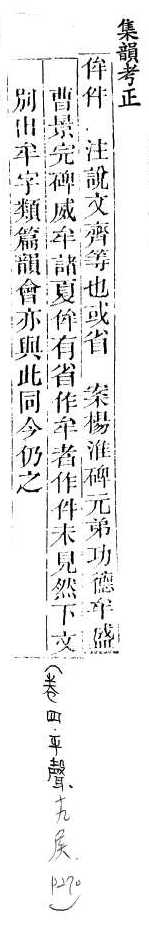 集韻考正
侔件 注說文齊等也或省 案楊淮碑元弟功德牟盛
曹景完碑威牟諸夏侔有省作牟者作件未見然下文
別出牟字類篇韻會亦與此同今仍之
(卷四.平聲.十九侯.p270)